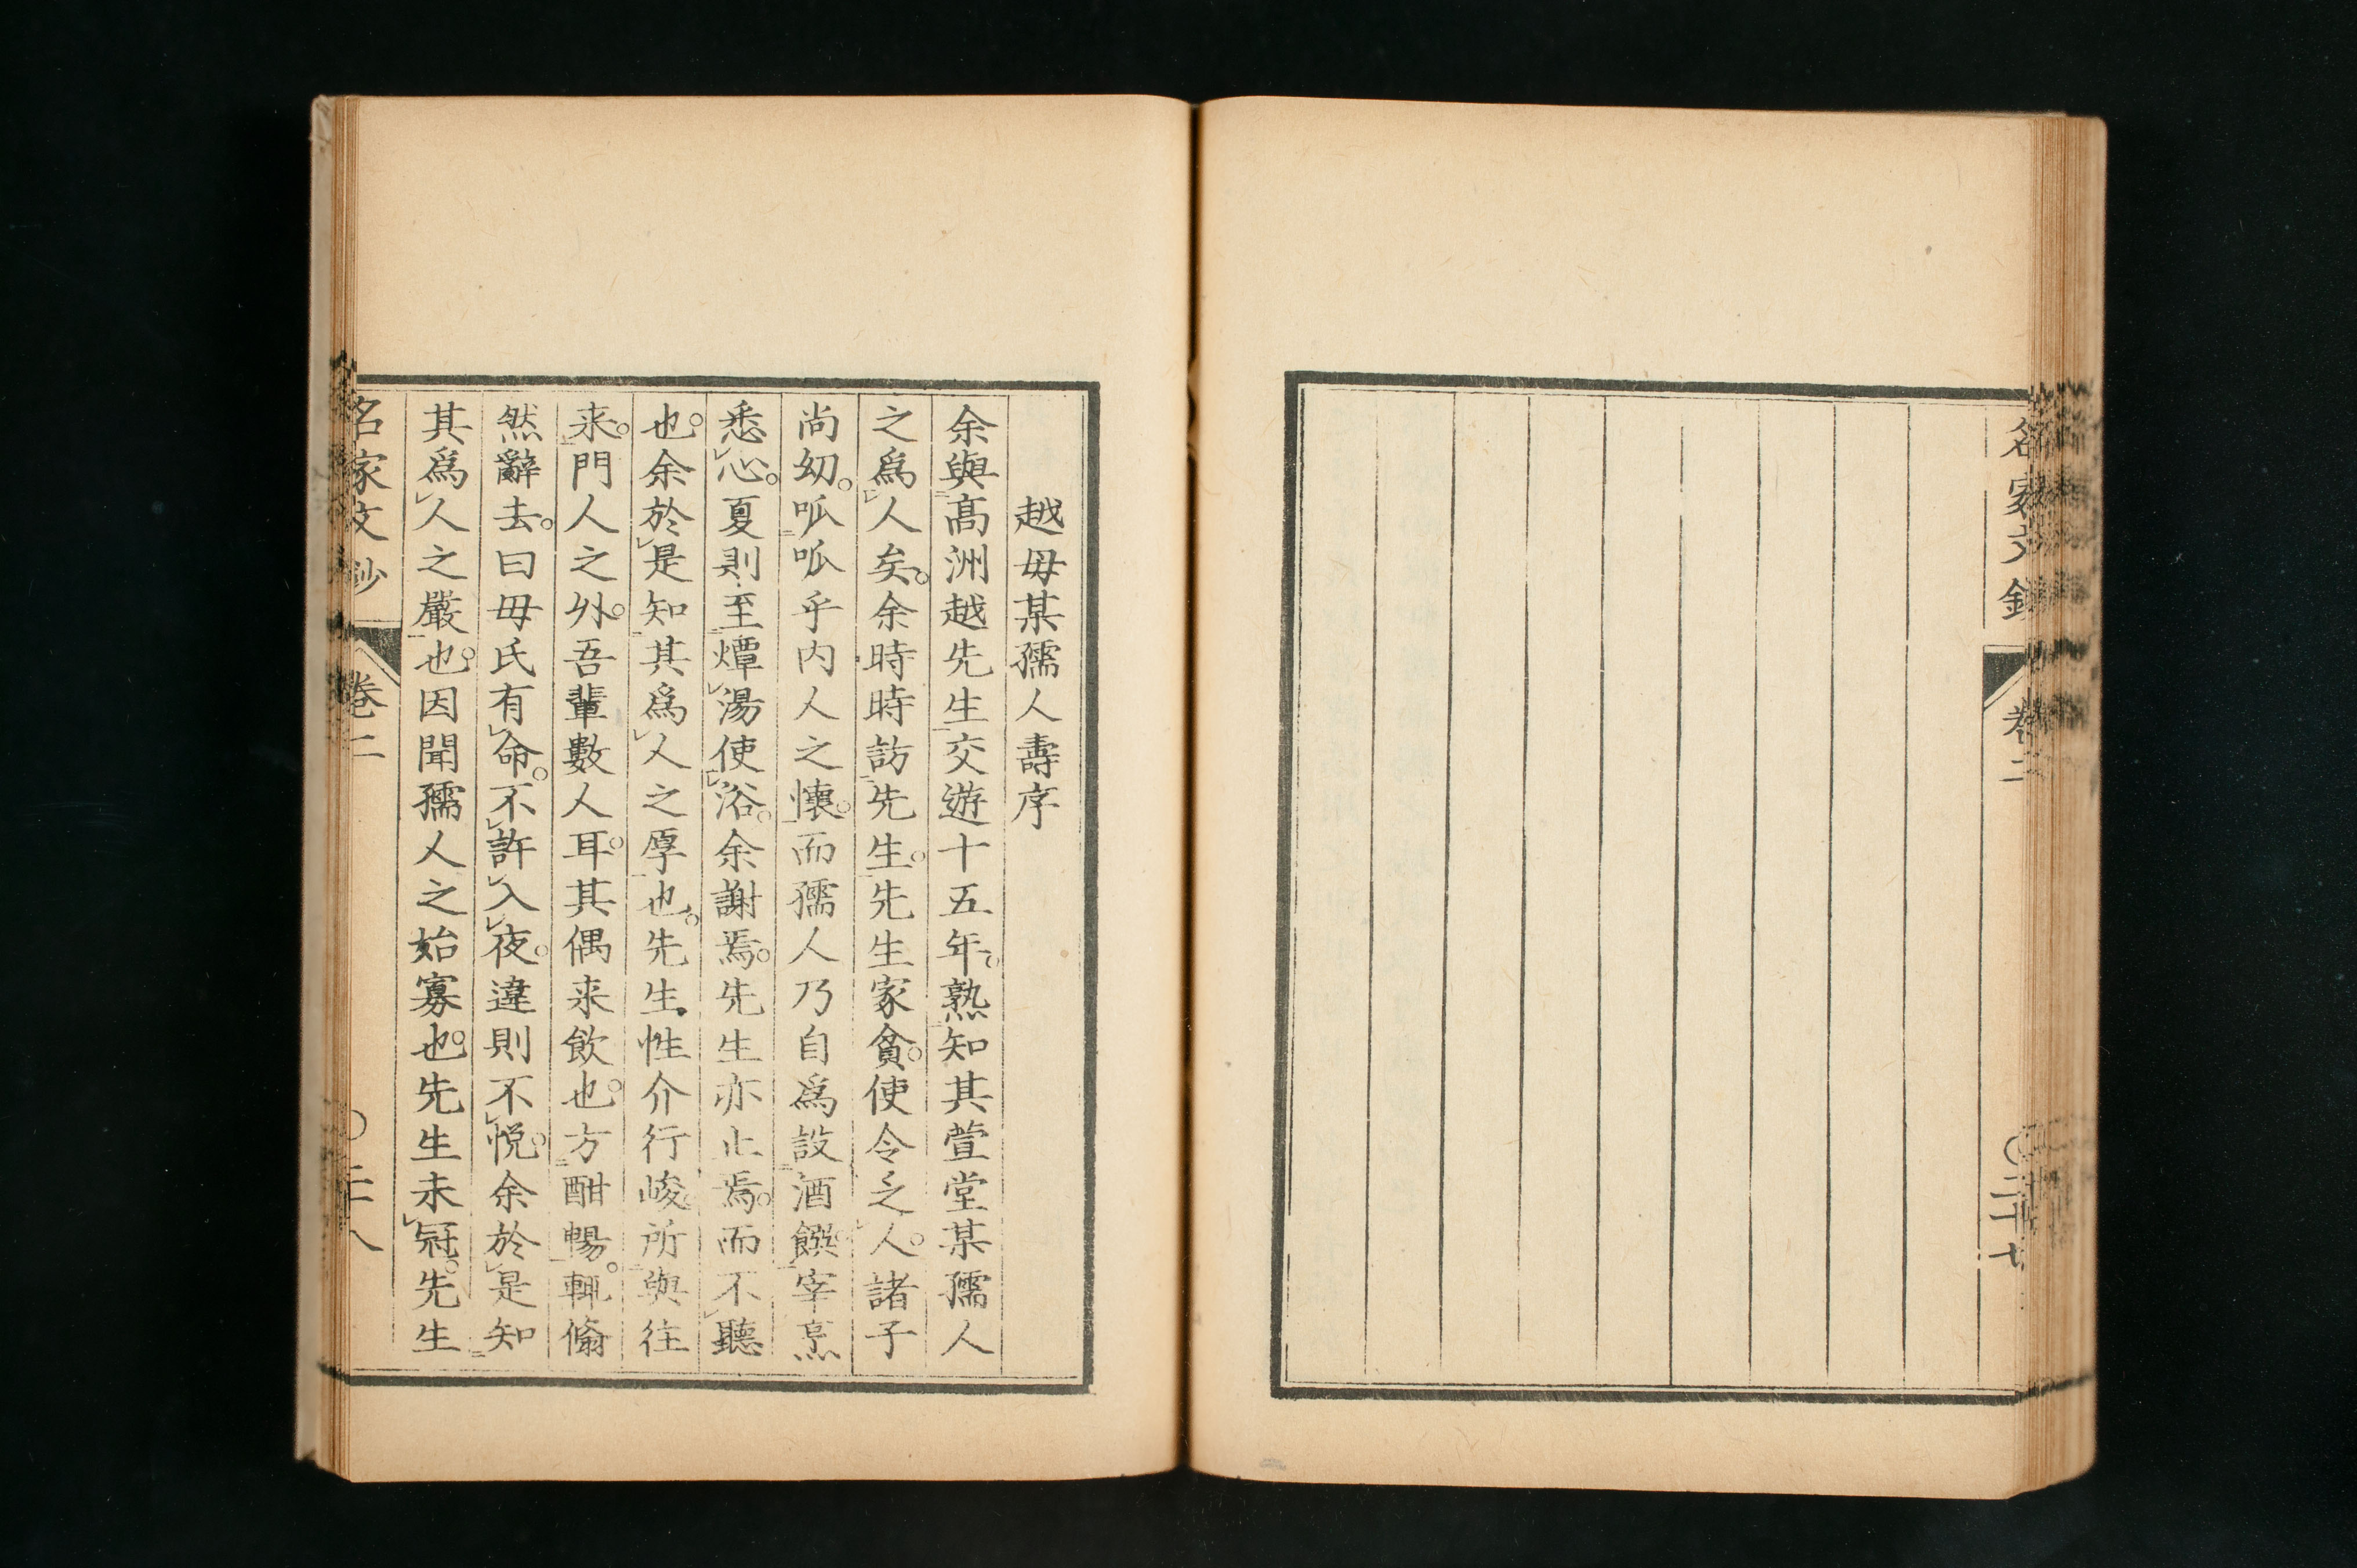 名家文鈔
卷二
〇二十七
越母某孺人壽序
余與高洲越先生交遊十五年。熟知其萱堂某孺人
之爲人矣。余時時訪先生。先生家貧。使令乏人。諸子
尚幼。呱呱乎内人之懷。而孺人乃自爲設酒饌。宰烹
悉心。夏則至燂湯使浴。余謝焉。先生亦止焉。而不聽
也。余於是知其爲人之厚也。先生性介行峻。所與往
来。門人之外。吾輩數人耳。其偶来飲也。方酣暢。輒偹
然辭去。曰母氏有命。不許入夜。違則不悦。余於是知
其爲人之嚴也。因聞孺人之始寡也。先生未冠。先生
名家文鈔
卷二
〇二十八